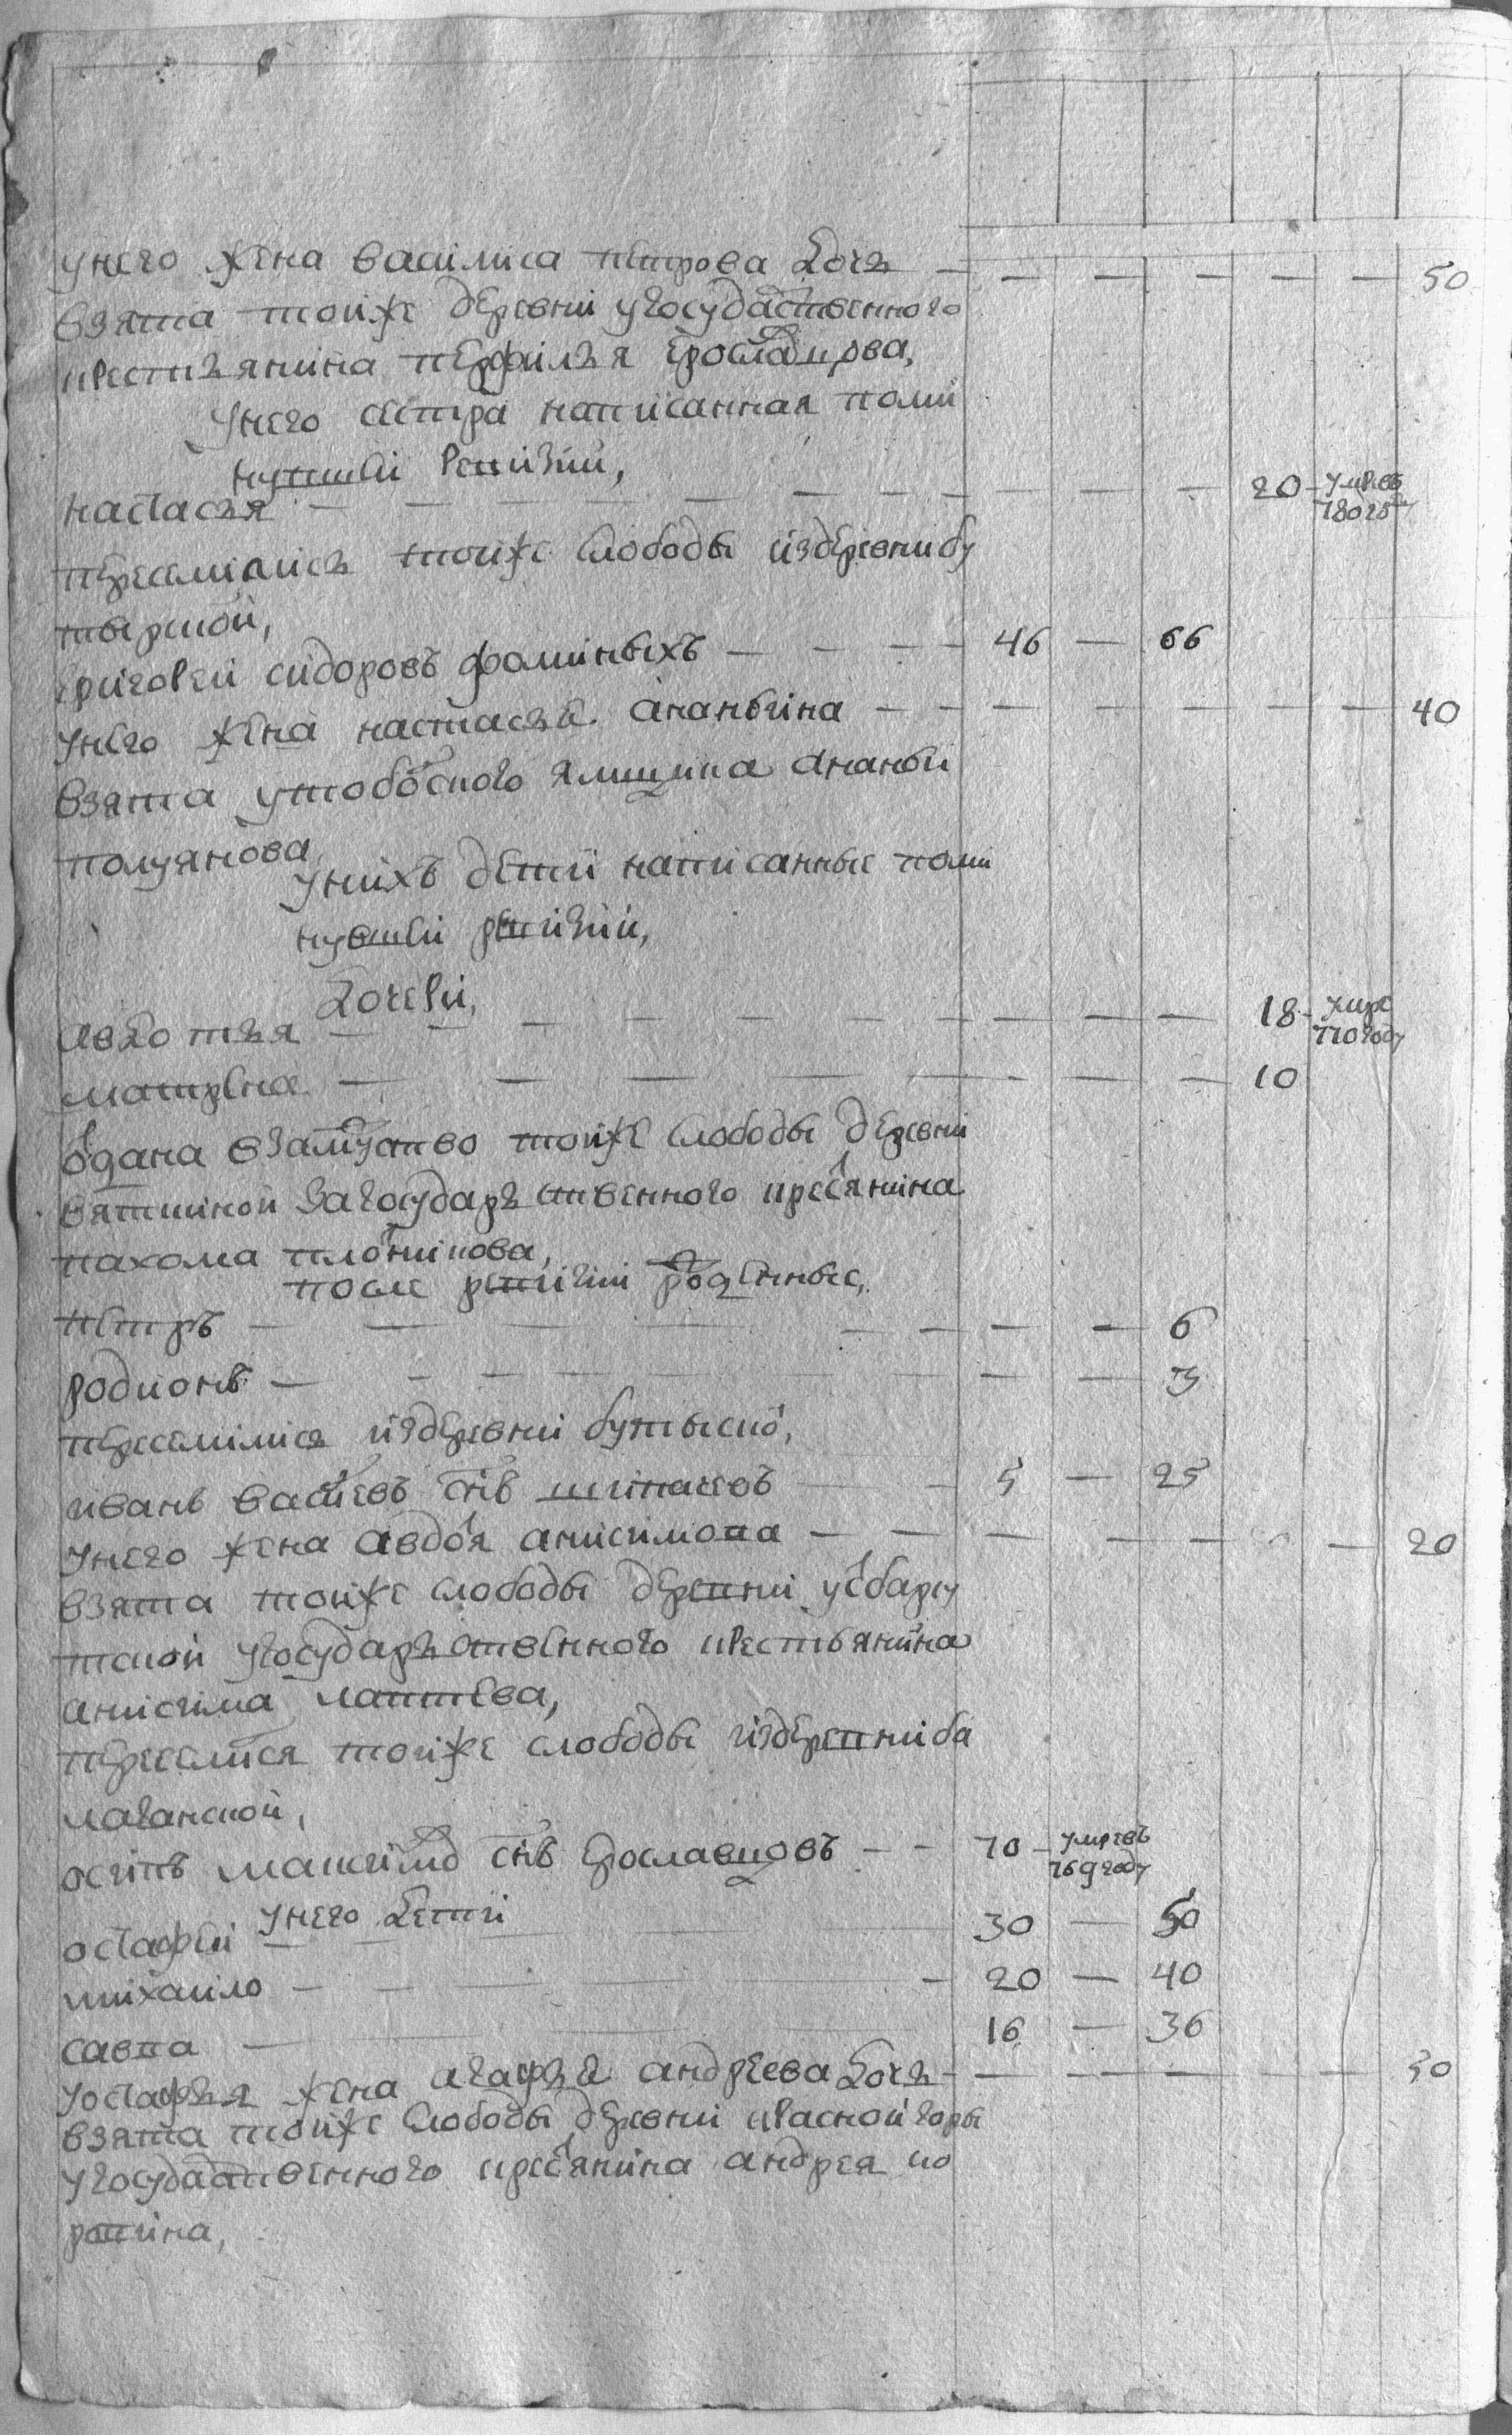 унего жена василиса петрова дочь — — — — — — 50
взята тойже деревни угосударственного
крестьянина перфилья ерославцова,
унего сестра написанная поми
нувшеи ревизии,
настасья — — — — — — — — — 20 — умре въ 780 году
переселились тойже слободы издеревни бу
тырской,
григореи сидоровъ фоминыхъ — — — — 46 — 66
унего жена настасья ананьина — — — — — — — 40
взята утобольского ямщика ананьи
полуянова,
унихъ детеи написанные поми
нувшеи ревизии,
дочери,
авдотья — — — — — — — — — — 18 — умре 770 году
матрена — — — — — — — — 10
отдана взамужство тойже слободы деревни
вяткиной загосударственного крестьянина
пахома плотникова,
после ревизии рожденные,
петръ — — — — — — — 6
родионъ — — — — — — — 3
переселился издеревни бутырской,
иванъ васильевъ снъ шипачевъ — — 5 — 25
унего жена авдотья анисимова — — — — — — 20
взята тойже слободы деревни усбарку
тской угосударственного крестьянина
анисима лаптева,
переселился тойже слободы издеревни ба
лаганской,
осипъ максимовъ снъ ерославцовъ — — 70 — умре въ 769 году
унего детеи
остафеи — — 30 — 50
михаило — — — — 20 — 40
савва — 16 — 36
уостафья жена агафья андреева дочь — — — — — — 50
взята тойже слободы деревни красной горы
угосударственного крестьянина андрея ко
ротина,